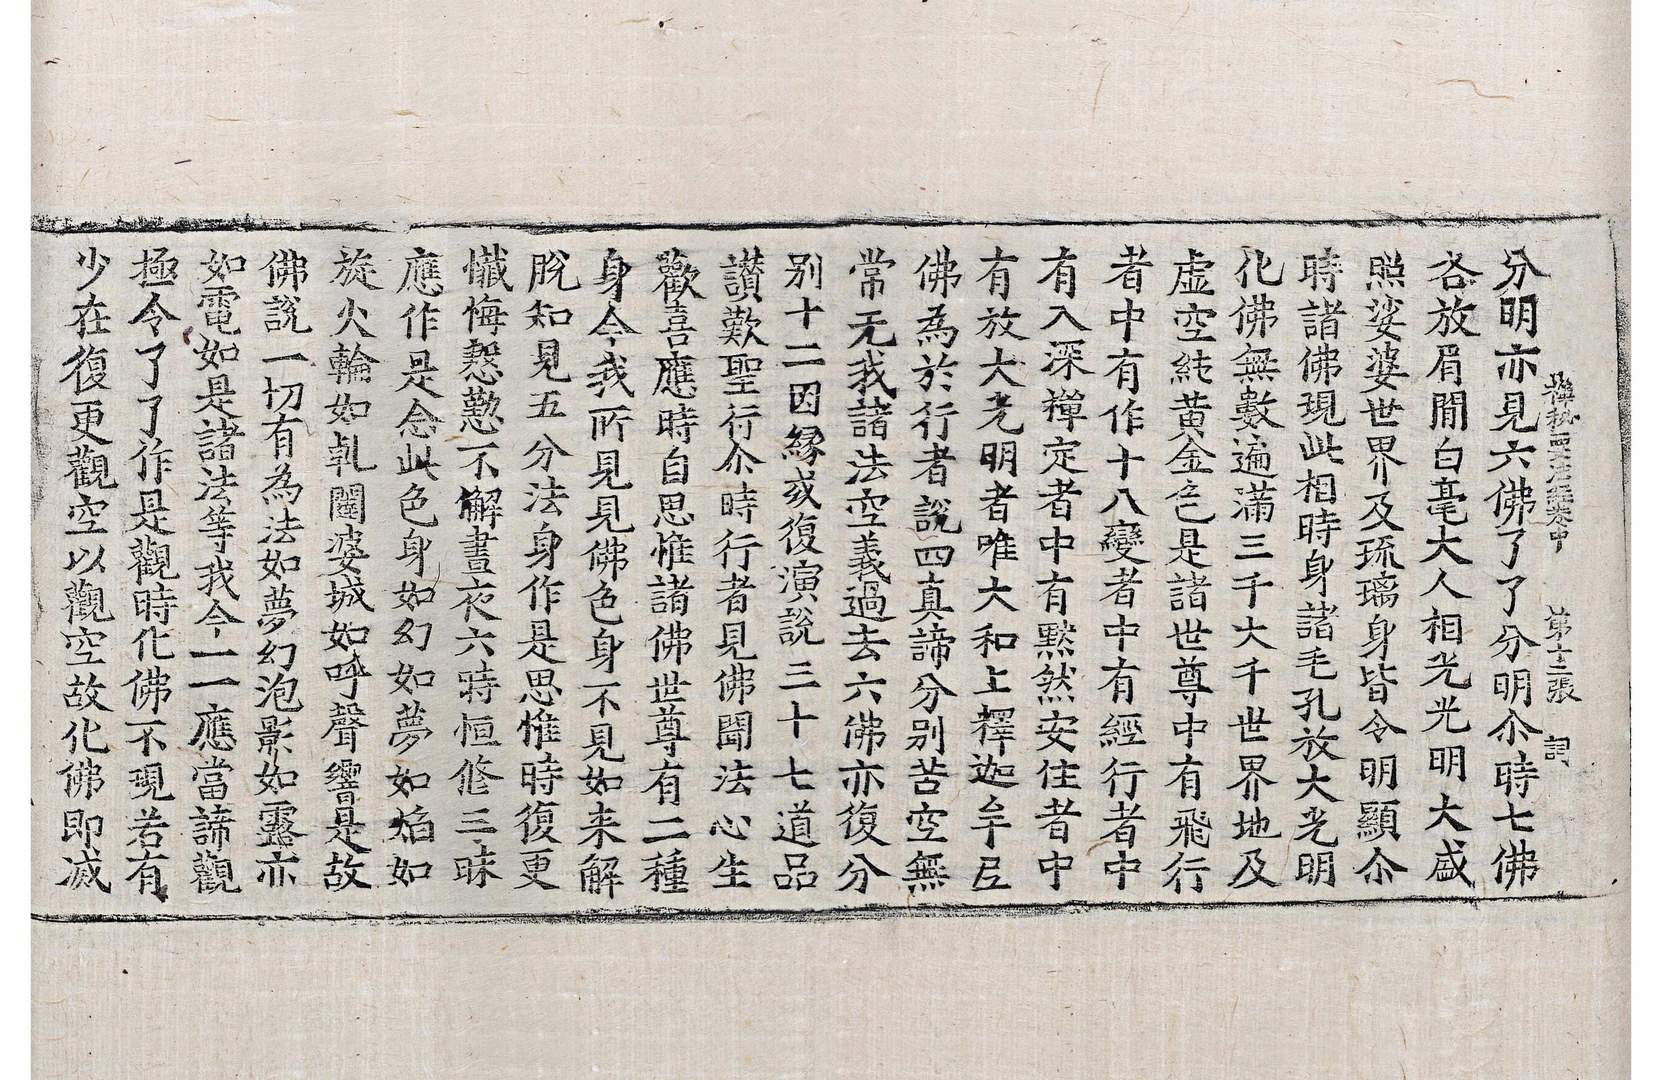 禪秘要法經卷中 第十二張 詞
分明亦見六佛了了分明尒時七佛
各放眉間白毫大人相光光明大盛
照娑婆世界及琉璃身皆令明顯尒
時諸佛現此相時身諸毛孔放大光明
化佛無數遍滿三千大千世界地及
虛空純黃金色是諸世尊中有飛行
者中有作十八變者中有經行者中
有入深禪定者中有默然安住者中
有放大光明者唯大和上釋迦牟尼
佛為於行者說四真諦分別苦空無
常无我諸法空義過去六佛亦復分
別十二因緣或復演說三十七道品
讃歎聖行尒時行者見佛聞法心生
歡喜應時自思惟諸佛世尊有二種
身今我所見見佛色身不見如来解
脫知見五分法身作是思惟時復更
懺悔懇懃不懈晝夜六時恒修三昧
應作是念此色身如幻如夢如焰如
旋火輪如乹闥婆城如呼聲響是故
佛說一切有為法如夢幻泡影如露亦
如電如是諸法等我今一一應當諦觀
極令了了作是觀時化佛不現若有
少在復更觀空以觀空故化佛即滅